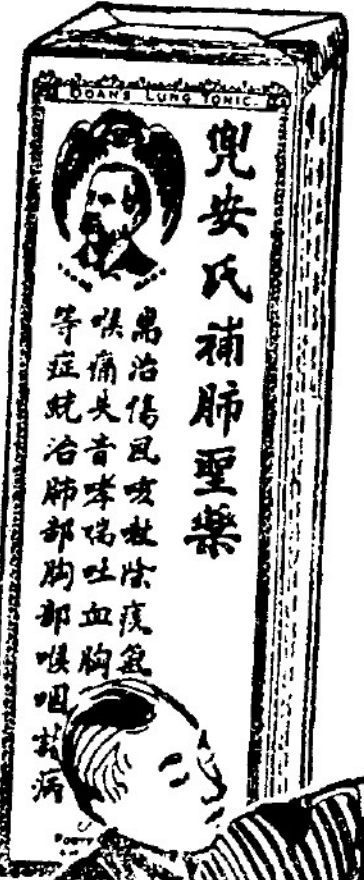 DOAN'S LUNG TONIC.
兜安氏補肺聖藥
耑治傷風咳嗽痰氣
喉痛失音哮喘吐血胸
等症統治肺部胸部喉咽諸病